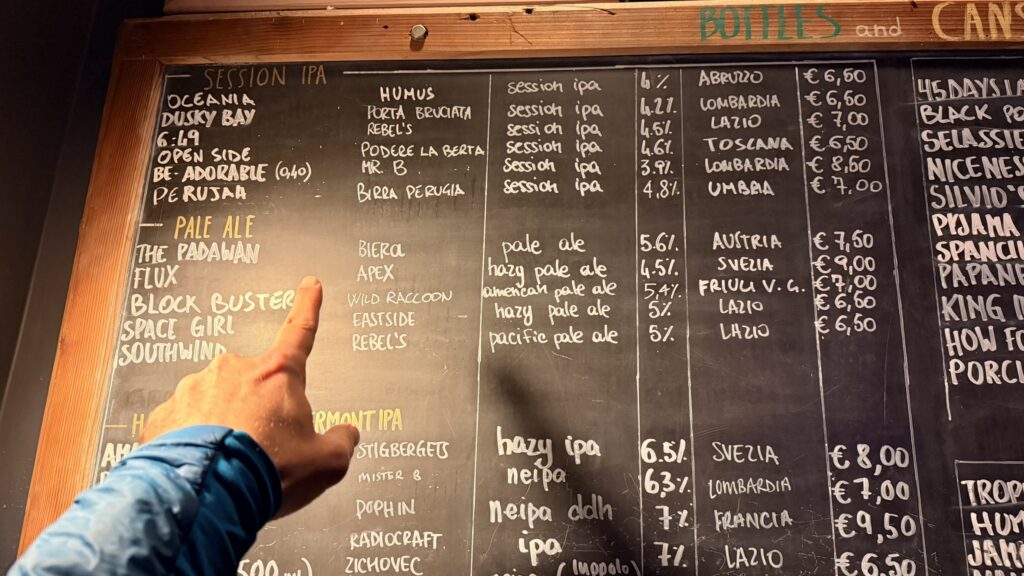 BOTTLES and CANS
SESSION IPA
OCEANIA HUMUS session ipa 4% ABRUZZO € 6,60
DUSKY BAY PORTA BRUCIATA session ipa 4.2% LOMBARDIA € 6,60
6:19 REBEL'S session ipa 4,5% LAZIO € 7,00
OPEN SIDE PODERE LA BERTA session ipa 4,6% TOSCANA € 6,50
BE ADORABLE (0,40) MR. B session ipa 3.9% LOMBARDIA € 8,60
PERUJAH BIRRA PERUGIA session ipa 4,8% UMBRIA € 7,00
PALE ALE
THE PADAWAN BIEROL pale ale 5.6% AUSTRIA € 7,50
FLUX APEX hazy pale ale 4.5% SVEZIA € 9,00
BLOCK BUSTER WILD RACCOON american pale ale 5,4% FRIULI V. G. € 7,00
SPACE GIRL EASTSIDE hazy pale ale 5% LAZIO € 6,60
SOUTHWIND REBEL'S pacific pale ale 5% LAZIO € 6,50
ERMONT IPA
STIGBERGETS hazy ipa 6.5% SVEZIA € 8,00
MISTER B neipa 6,3% LOMBARDIA € 7,00
POPHIN neipa ddh 7% FRANCIA € 9,50
RADIOCRAFT ipa 7% LAZIO € 6,50
ZICHOVEC (luppolo)
45 DAYS LA
BLACK PO
SELASSIE
NICENES
SILVIO'S
PYJAMA
SPANCIU
PAPANE
KING
HOW FO
PORCL
TROP
HUM
JAM